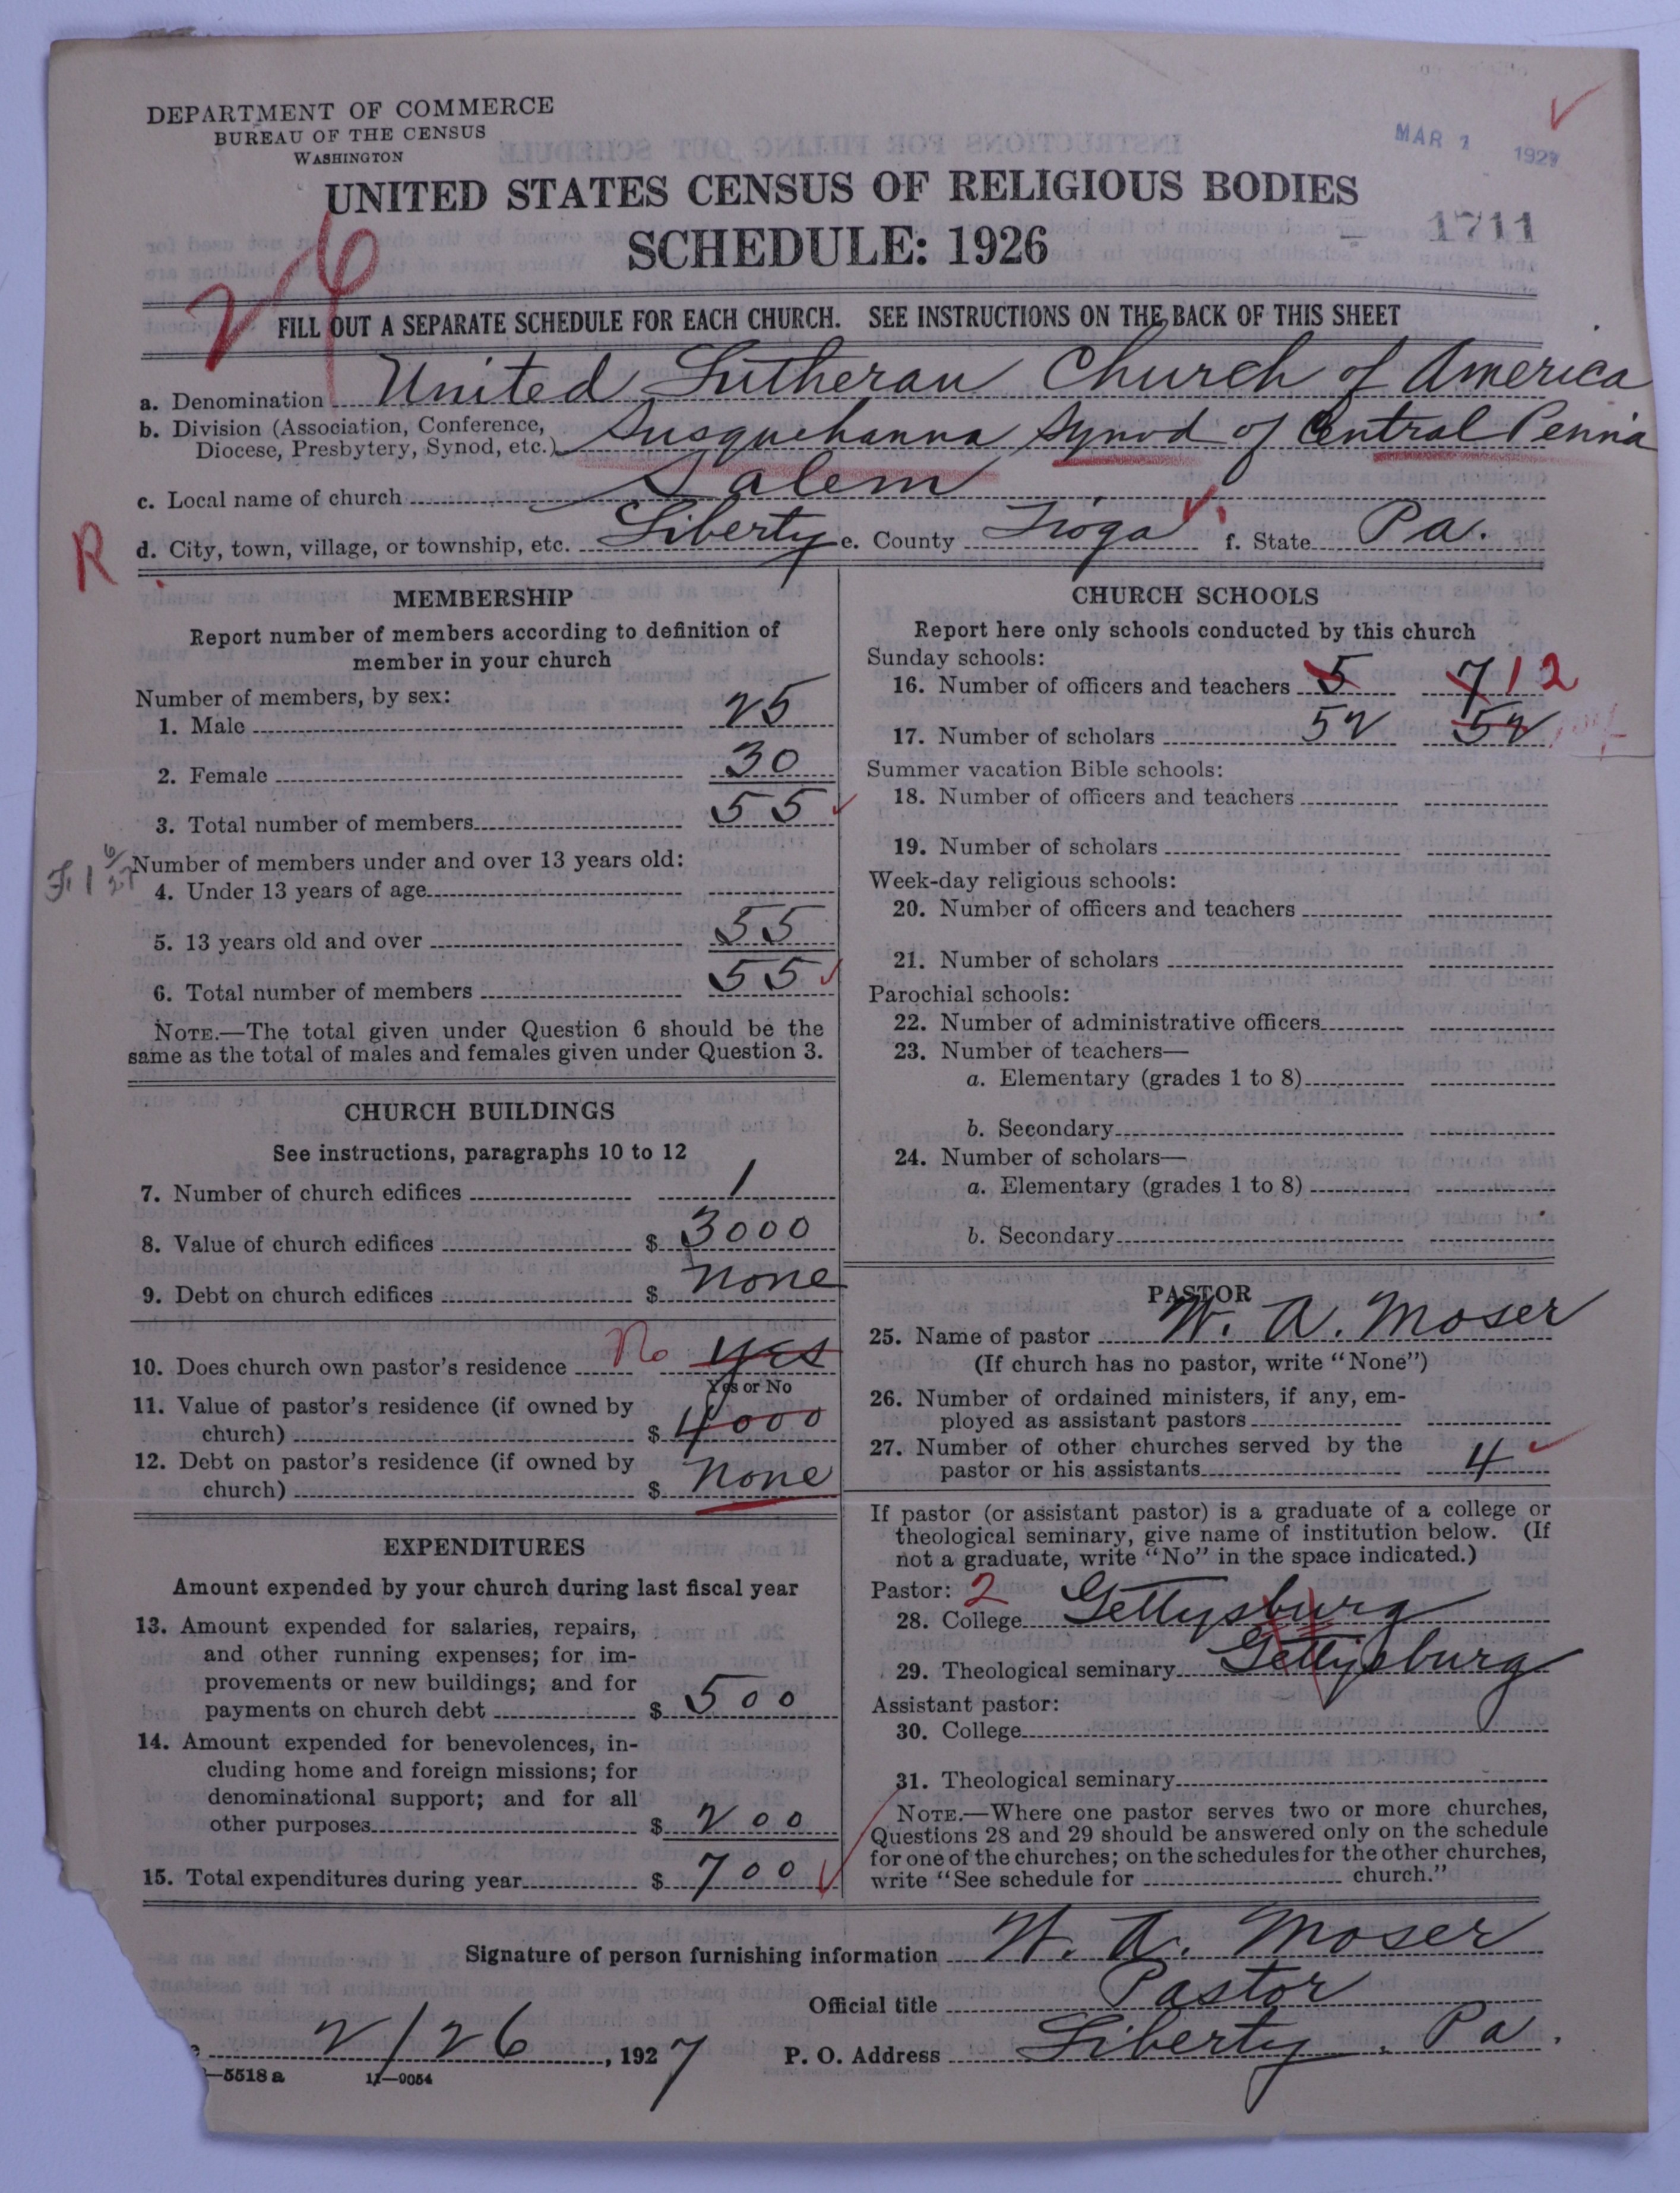 DEPARTMENT OF COMMERCE
BUREAU OF THE CENSUS
WASHINGTON
MAR 1 1927
UNITED STATES CENSUS OF RELIGIOUS BODIES
SCHEDULE: 1926
1711
FILL OUT A SEPARATE SCHEDULE FOR EACH CHURCH. SEE INSTRUCTIONS ON THE BACK OF THIS SHEET
a. Denomination United Lutheran Church of America
b. Division (Association, Conference,
Diocese, Presbytery, Synod, etc.) Susquehanna Synod of Central Penna
c. Local name of church Salem
R
d. City, town, village, or township, etc. Liberty e. County Tioga f. State Pa.
MEMBERSHIP
Report number of members according to definition of
member in your church
Number of members, by sex:
1. Male 25
2. Female 30
3. Total number of members 55
Number of members under and over 13 years old:
4. Under 13 years of age
5. 13 years old and over 55
6. Total number of members 55
NOTE.—The total given under Question 6 should be the
same as the total of males and females given under Question 3.
CHURCH BUILDINGS
See instructions, paragraphs 10 to 12
7. Number of church edifices 1
8. Value of church edifices $ 3000
9. Debt on church edifices $ none
10. Does church own pastor's residence No yes
Yes or No
11. Value of pastor's residence (if owned by
church) $ 4000
12. Debt on pastor's residence (if owned by
church) $ none
EXPENDITURES
Amount expended by your church during last fiscal year
13. Amount expended for salaries, repairs,
and other running expenses; for im-
provements or new buildings; and for
payments on church debt $ 500
14. Amount expended for benevolences, in-
cluding home and foreign missions; for
denominational support; and for all
other purposes $ 200
15. Total expenditures during year $ 700
CHURCH SCHOOLS
Report here only schools conducted by this church
Sunday schools:
16. Number of officers and teachers 5 7 12
17. Number of scholars 52 52
Summer vacation Bible schools:
18. Number of officers and teachers
19. Number of scholars
Week-day religious schools:
20. Number of officers and teachers
21. Number of scholars
Parochial schools:
22. Number of administrative officers
23. Number of teachers—
a. Elementary (grades 1 to 8)
b. Secondary
24. Number of scholars—
a. Elementary (grades 1 to 8)
b. Secondary
PASTOR
25. Name of pastor W. A. Moser
(If church has no pastor, write "None")
26. Number of ordained ministers, if any, em-
ployed as assistant pastors
27. Number of other churches served by the
pastor or his assistants 4
If pastor (or assistant pastor) is a graduate of a college or
theological seminary, give name of institution below. (If
not a graduate, write "No" in the space indicated.)
Pastor: 2
28. College Gettysburg
29. Theological seminary Gettysburg
Assistant pastor:
30. College
31. Theological seminary
NOTE.—Where one pastor serves two or more churches,
Questions 28 and 29 should be answered only on the schedule
for one of the churches; on the schedules for the other churches,
write "See schedule for church."
Signature of person furnishing information W. A. Moser
Official title Pastor
2/26, 1927 P. O. Address Liberty, Pa.
—5518 a 11—9054